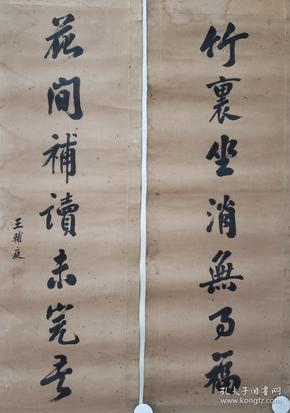 竹裏坐消無事福
花間補讀未完書
王輔庭
孔夫子旧书网